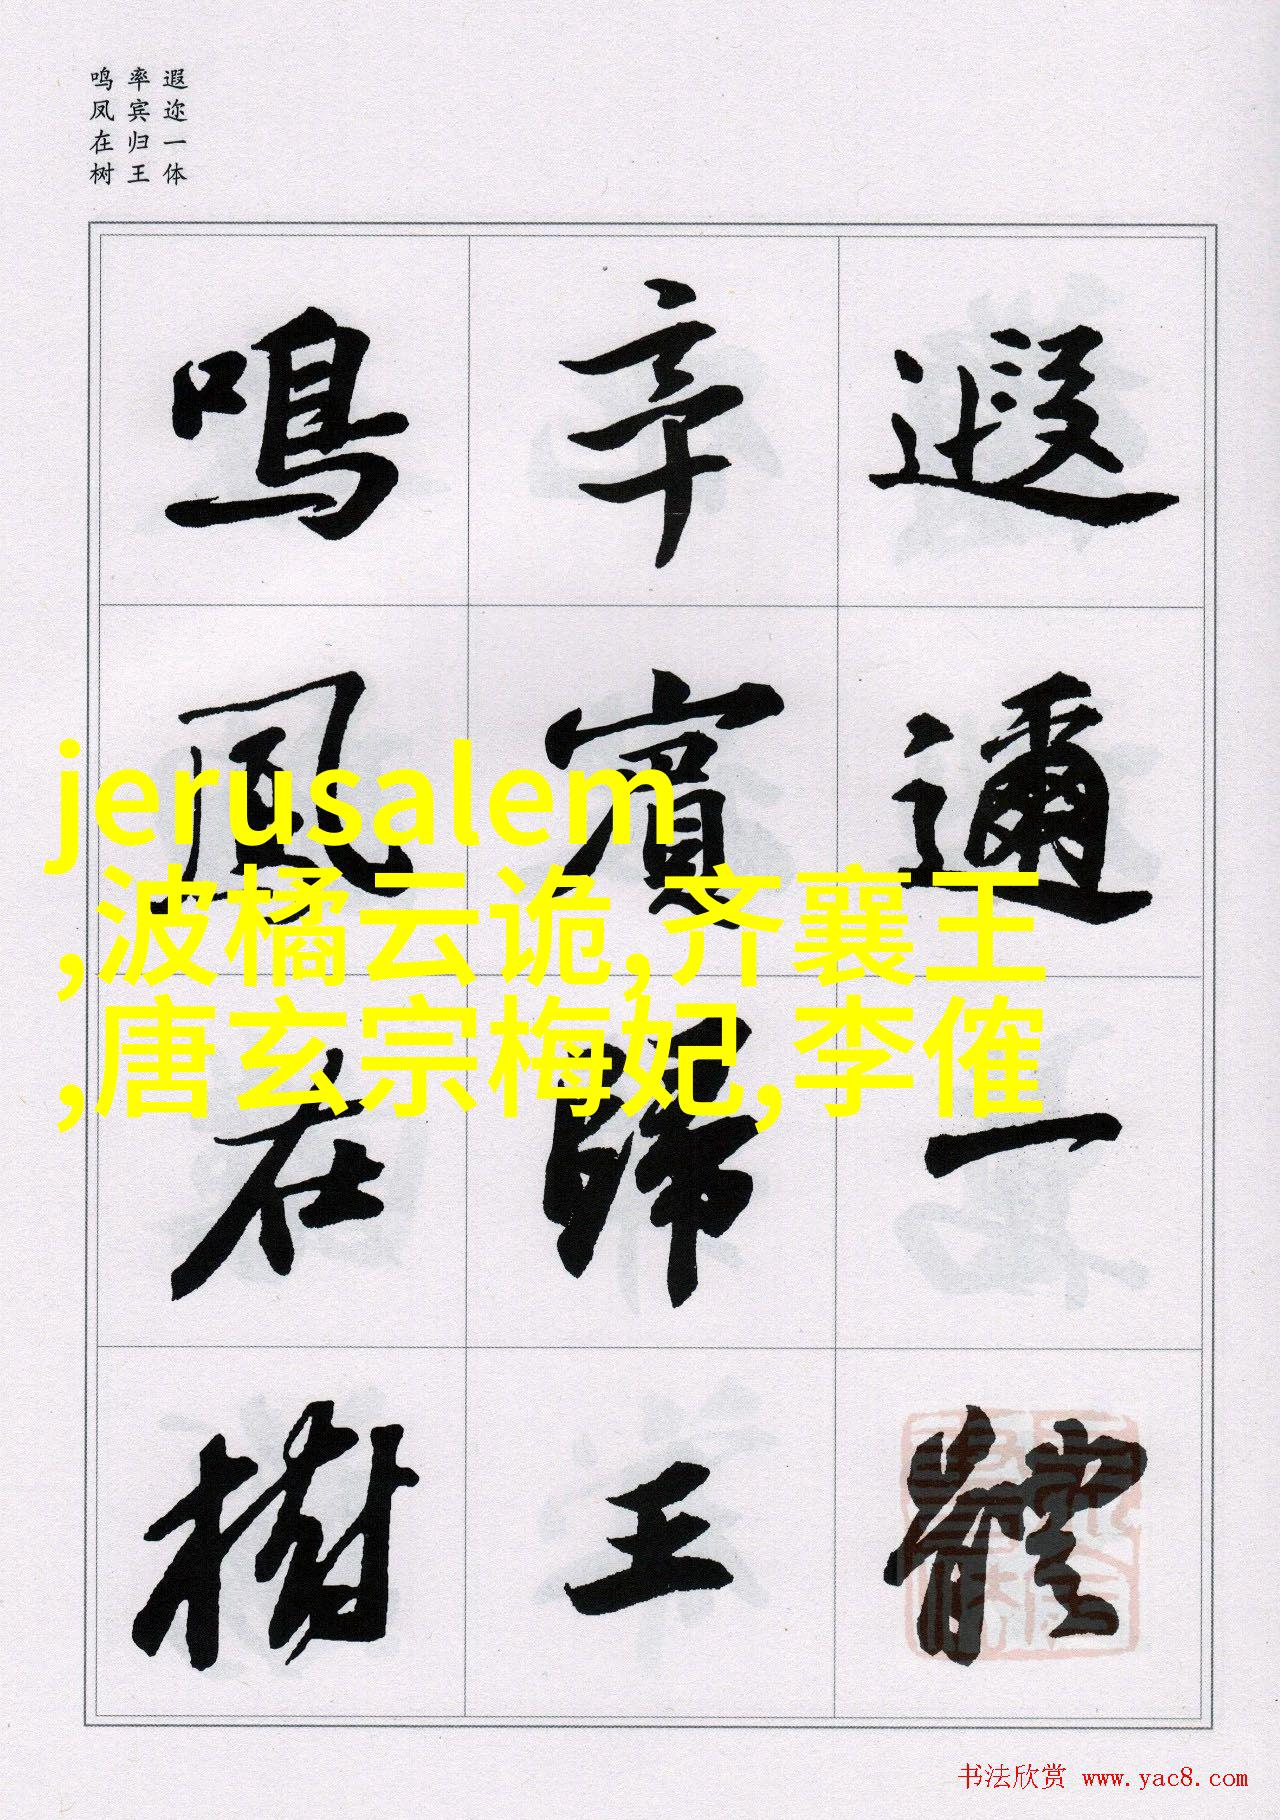 遐迩一体
率宾归王
鸣凤在树
遐邇一體
率賓歸王
鳴鳳在樹
jerusalem
,波橘云诡,齐襄王
,唐玄宗梅妃,李傕
书法欣赏 www.yac8.com